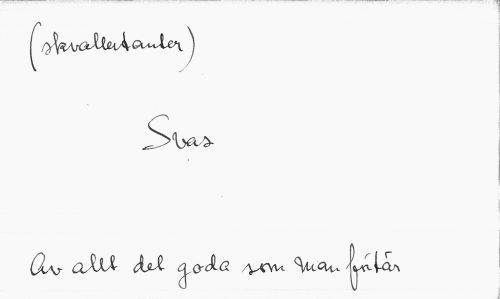 (skvallertanter)
Svas
Av allt det goda som man förtär